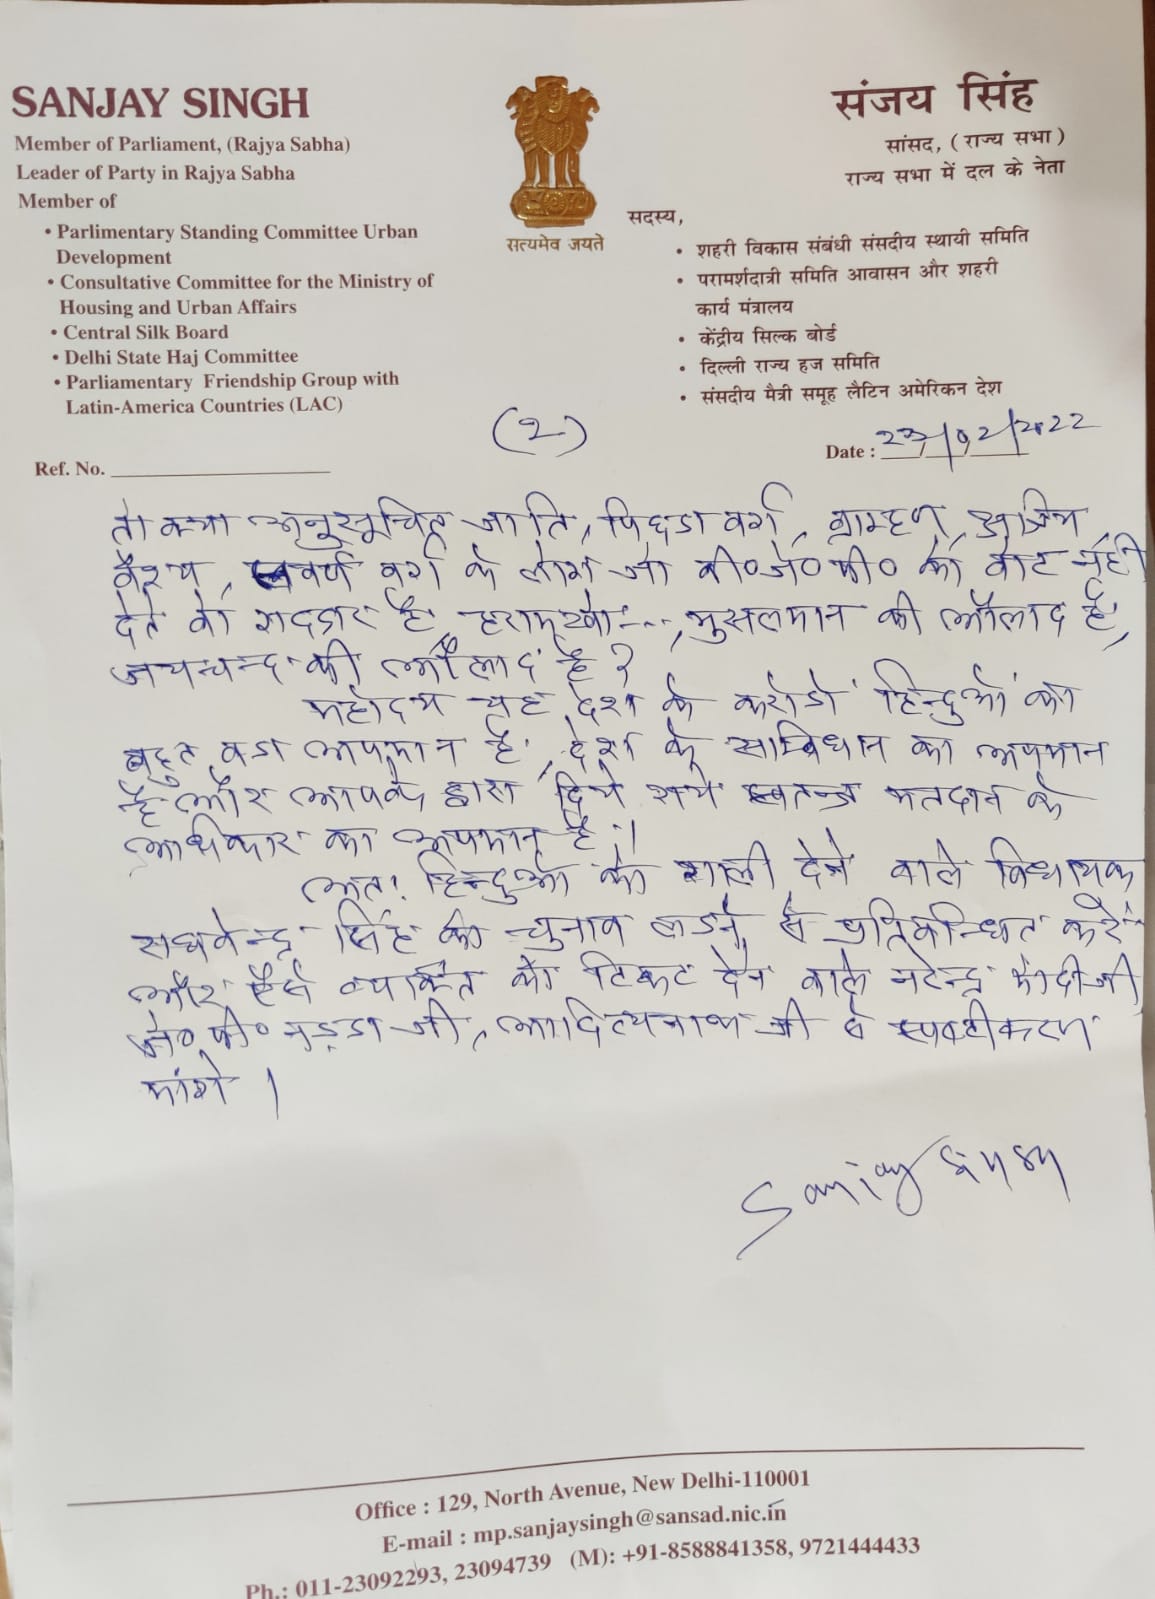 SANJAY SINGH
Member of Parliament, (Rajya Sabha)
Leader of Party in Rajya Sabha
Member of
• Parlimentary Standing Committee Urban
Development
• Consultative Committee for the Ministry of
Housing and Urban Affairs
• Central Silk Board
• Delhi State Haj Committee
• Parliamentary Friendship Group with
Latin-America Countries (LAC)
Ref. No.
सत्यमेव जयते
संजय सिंह
सांसद, (राज्य सभा)
राज्य सभा में दल के नेता
सदस्य,
• शहरी विकास संबंधी संसदीय स्थायी समिति
• परामर्शदात्री समिति आवासन और शहरी
कार्य मंत्रालय
• केंद्रीय सिल्क बोर्ड
• दिल्ली राज्य हज समिति
• संसदीय मैत्री समूह लैटिन अमेरिकन देश
(2)
Date : 23/02/2022
तो क्या अनुसूचित जाति, पिछडा वर्ग, ब्राम्हण, क्षत्रिय
वैश्य, स्वर्ण वर्ग के लोग जो बी०जे०पी० को वोट नहीं
देते वो गद्दार है, हरामखो---, मुसलमान की औलाद है,
जयचन्द की औलाद है?
महोदय यह देश के करोडो हिन्दुओं का
बहुत बडा अपमान है, देश के संविधान का अपमान
है और आपके द्वारा दिये गये स्वतन्त्र मतदान के
अधिकार का अपमान है।
अतः हिन्दुओं को गाली देने वाले विधायक
राघवेन्द्र सिंह को चुनाव लडने से प्रतिबन्धित करें
और ऐसे व्यक्ति को टिकट देने वाले नरेन्द्र मोदी जी
जे०पी० नड्डा जी, आदित्यनाथ जी से स्पष्टीकरण
मांगे।
Sanjay Singh
Office : 129, North Avenue, New Delhi-110001
E-mail : mp.sanjaysingh@sansad.nic.in
Ph.: 011-23092293, 23094739 (M): +91-8588841358, 9721444433